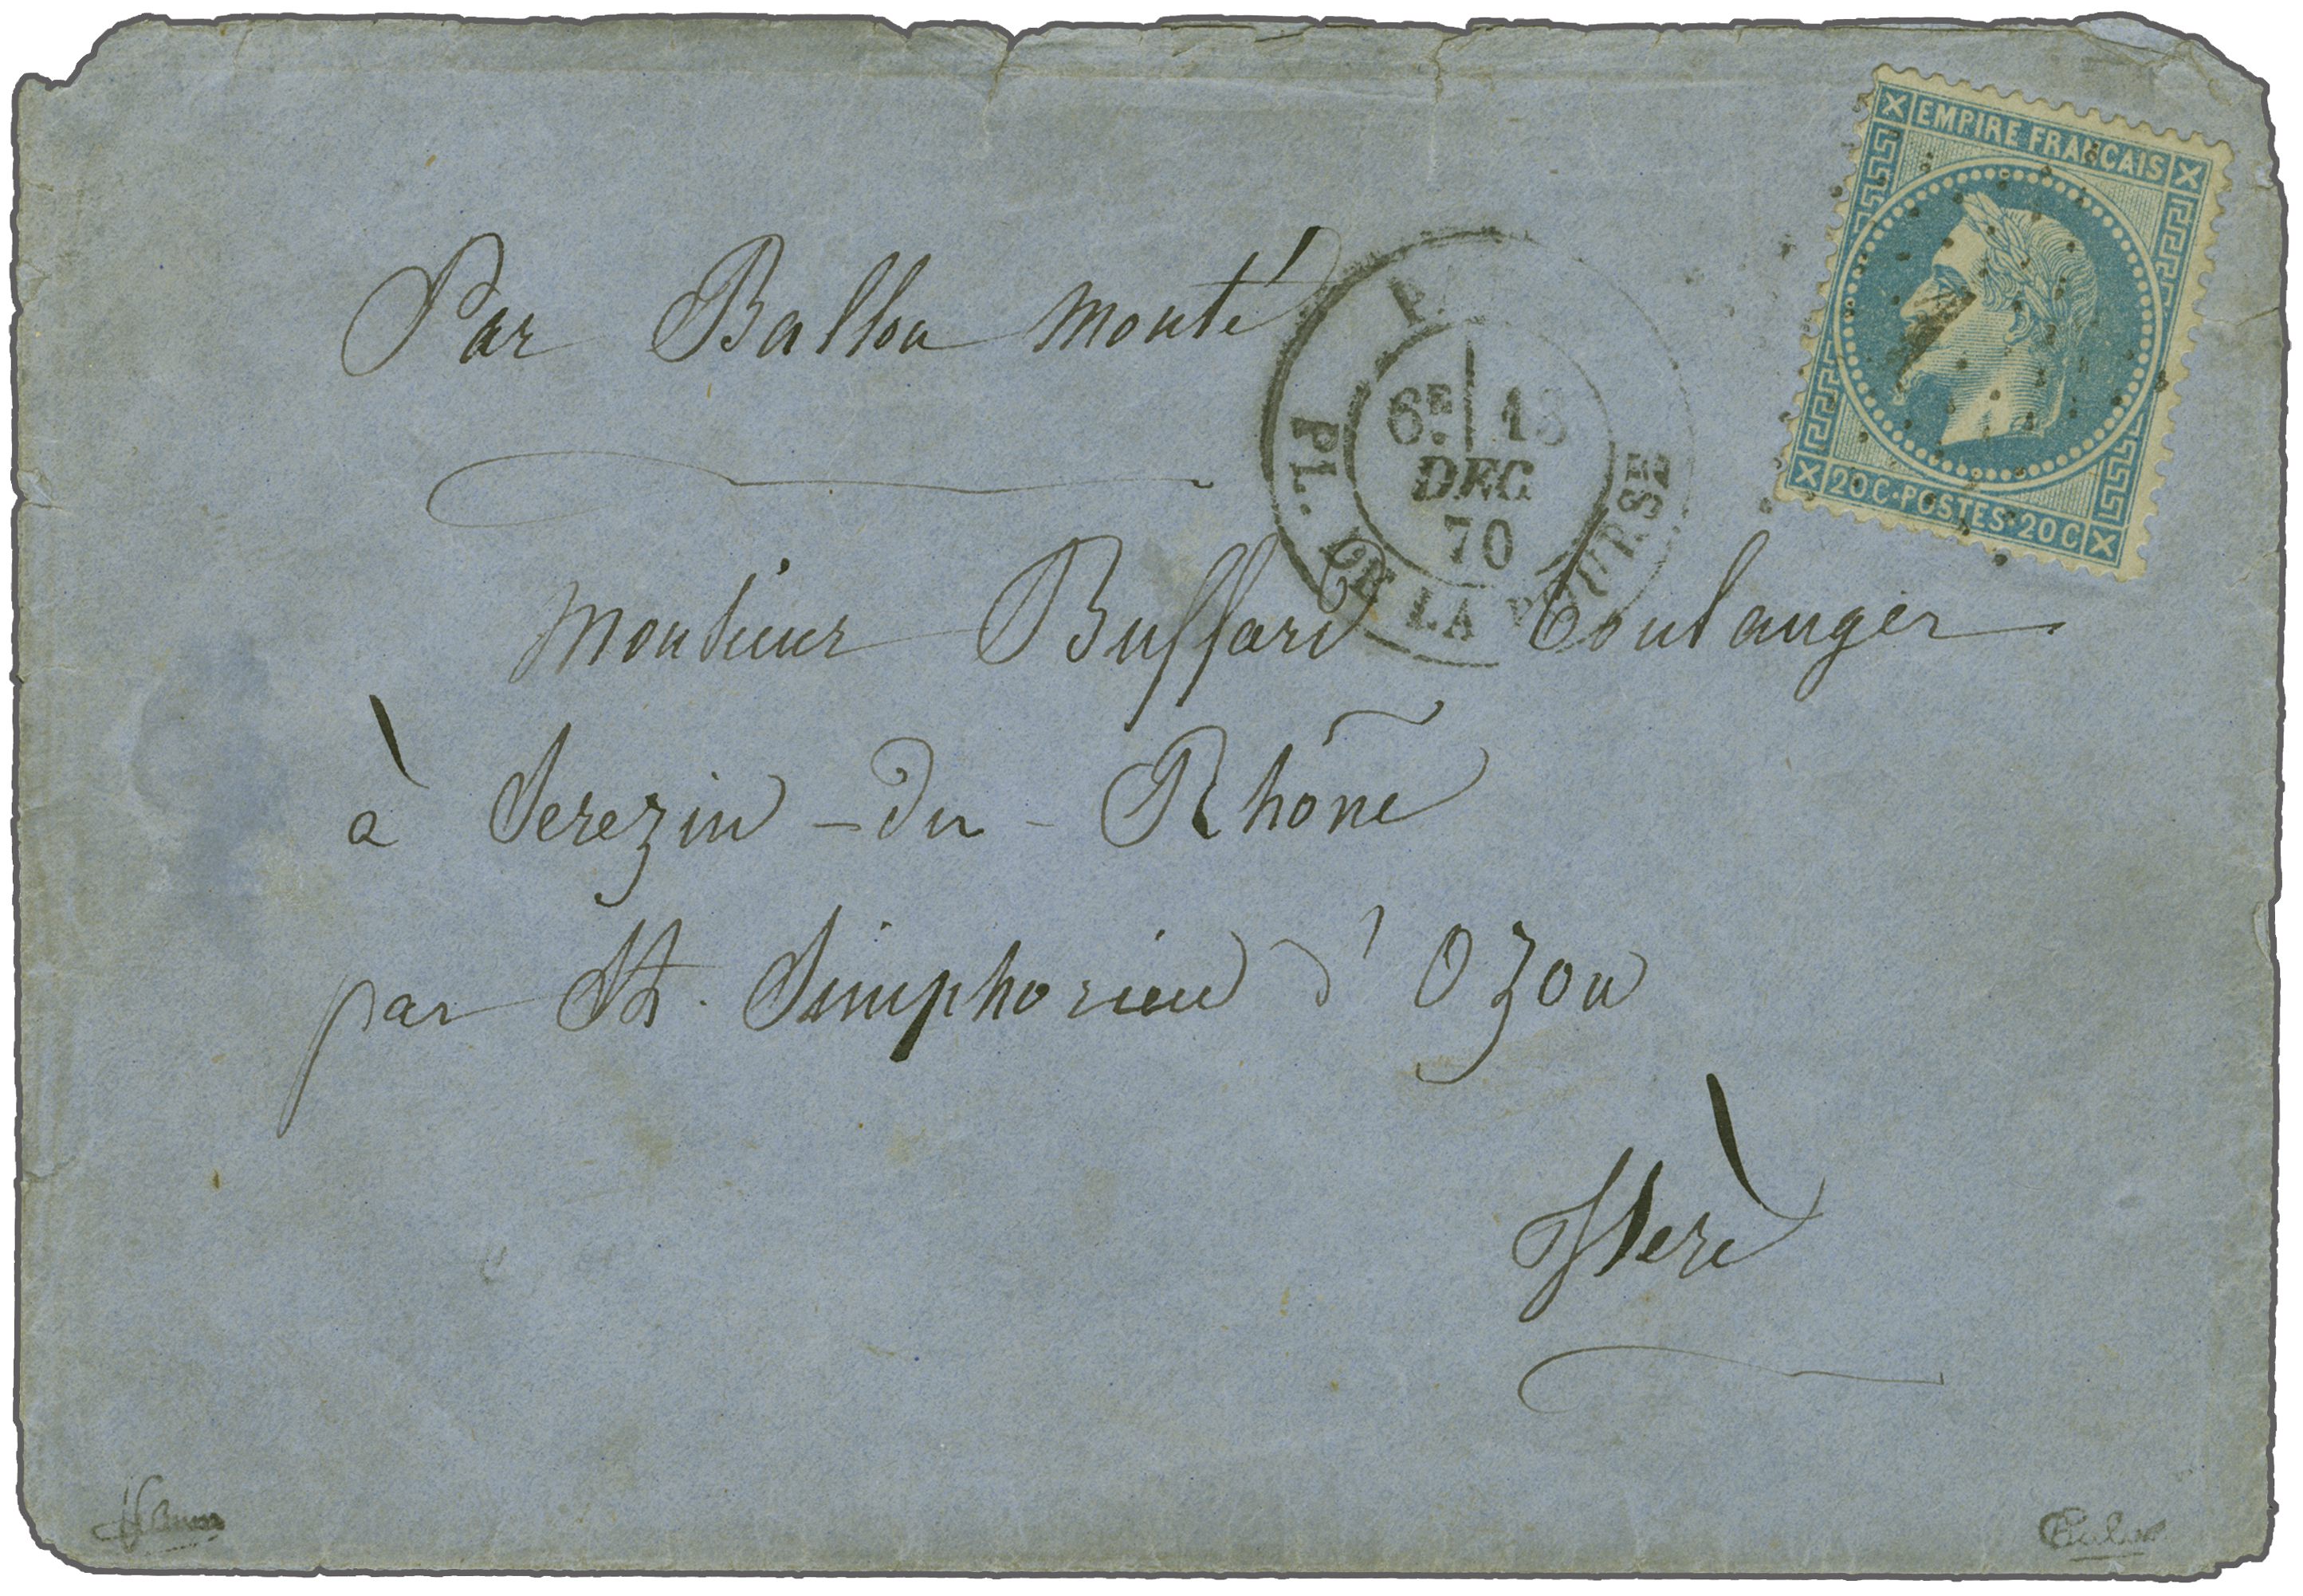 EMPIRE FRANÇAIS
Par Ballon monté
6E 18
DEC
70
PL. DE LA BOURSE
1
20C·POSTES·20C
Monsieur Buffard boulanger
à Serezin-du-Rhône
par St. Simphorien d'Ozon
Iserè